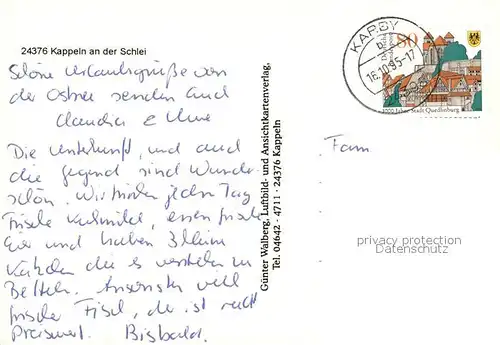 24376 Kappeln an der Schlei
Schöne Urlaubsgrüße von
der Ostsee senden Euch
Claudia & Uwe
Die Unterkunft, und auch
die Gegend sind wunder
schön. Wir trinken jeden Tag
frische Kuhmilch, essen frische
Eier und haben 3 kleine
Katzen die es verstehen zu
Betteln. Ansonsten viel
frischer Fisch, der ist recht
Preiswert. Bis bald.
Günter Walberg, Luftbild- und Ansichtkartenverlag,
Tel. 04642 - 4711 · 24376 Kappeln
KARBY
16.10.95-17
80
Deutsche Bundespost
1000 Jahre Stadt Quedlinburg
Fam.
privacy protection
Datenschutz